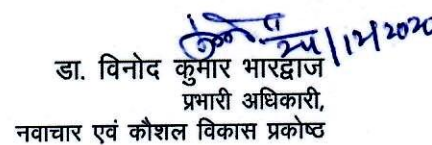 24/12/2020
डा. विनोद कुमार भारद्वाज
प्रभारी अधिकारी,
नवाचार एवं कौशल विकास प्रकोष्ठ